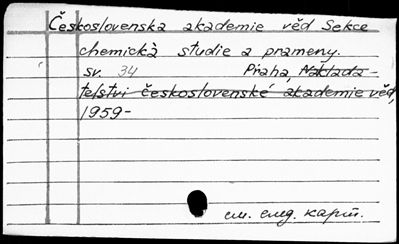 Československa akademie věd Sekce
chemická studie a prameny.
sv. 34 Praha, Naklada-
telstvi československé akademie věd,
1959-
см. след. карт.